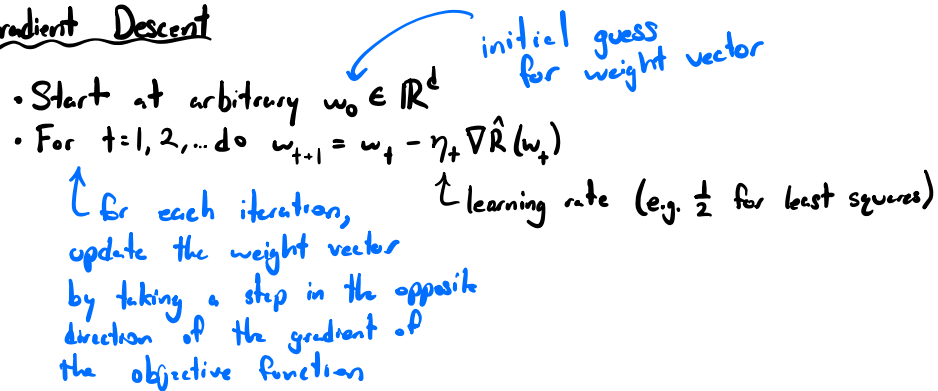 radient Descent
initial guess
for weight vector
• Start at arbitrary w₀ ∈ ℝᵈ
• For t=1, 2, ... do w_{t+1} = w_t - η_t ∇R̂(w_t)
learning rate (e.g. 1/2 for least squares)
for each iteration,
update the weight vector
by taking a step in the opposite
direction of the gradient of
the objective function